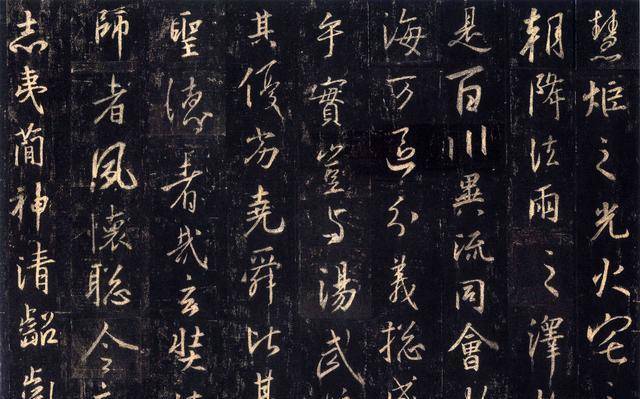 慧炬之光火宅之
朝降法雨之澤
是百川異流同會
海万區分義揔成
乎實豈与湯武
其優劣堯舜比其
聖德者哉玄奘
師者夙懷聰令
志夷簡神清齠